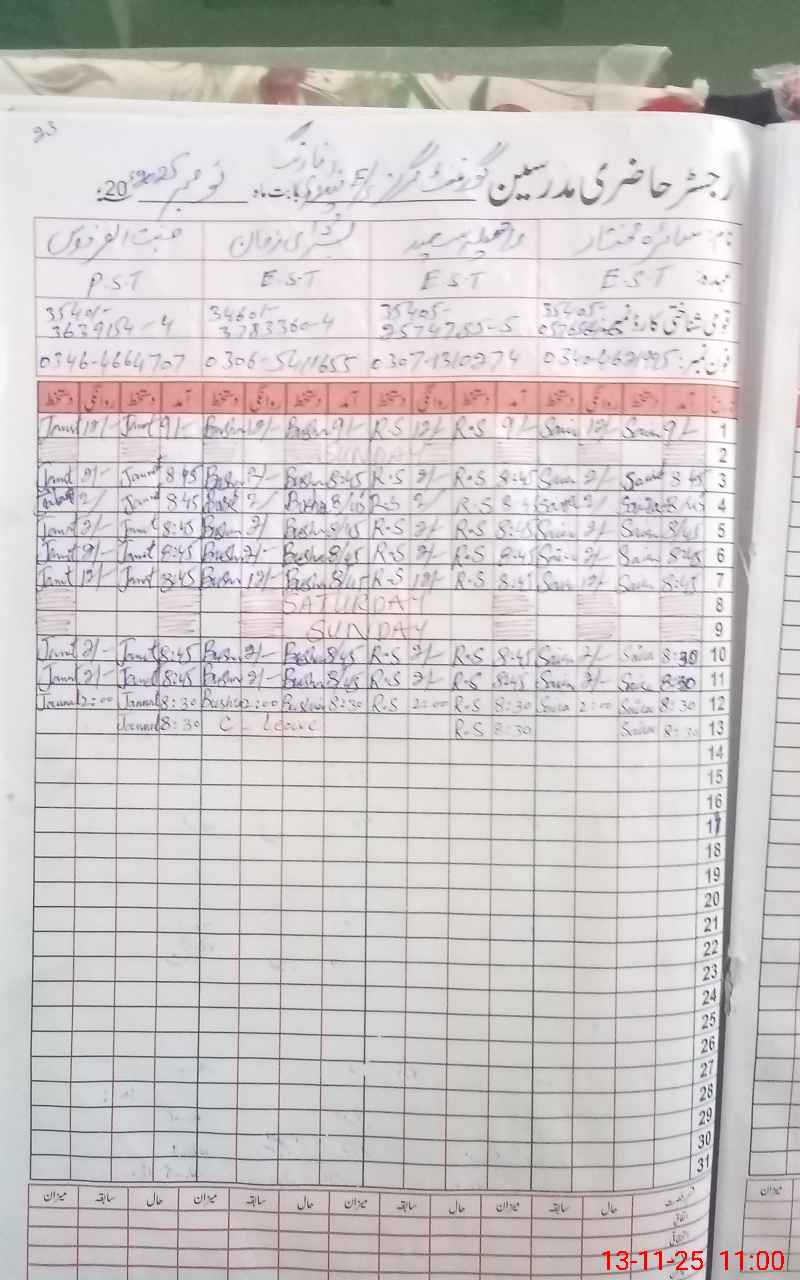 23
رجسٹر حاضری مدرسین گورنمنٹ گرلز بابت ماہ نومبر 2025ء
نام: سائرہ مختار راحیلہ سعید بشریٰ زمان جنت الفردوس
عہدہ: E.S.T E.S.T E.S.T P.S.T
قومی شناختی کارڈ نمبر: 35405- 35405-2574755-5 34601-3783360-4 35401-3639154-4
فون نمبر: 0307-1310274 0306-5411655 0346-4664707
تاریخ آمد دستخط روانگی دستخط آمد دستخط روانگی دستخط آمد دستخط روانگی دستخط آمد دستخط روانگی دستخط
1 9/- Saira 12/- Saira 9/- R.S 12/- R.S 9/- Bushra 12/- Bushra 9/- Jannat 12/- Jannat
2 SUNDAY
3 8:45 Saira 2/- Saira 8:45 R.S 2/- R.S 8:45 Bushra 2/- Bushra 8:45 Jannat 2/- Jannat
4 8/45 Saira 2/- 8:45 R.S 2/ R.S 8/45 Bushra 2/ 8:45 Jannat 2/
5 8/45 Saira 2/- Saira 8:45 R.S 2/- R.S 8/45 Bushra 2/ Bushra 8:45 Jannat 2/- Jannat
6 8:45 Saira 2/- Saira 8:45 R.S 2/- R.S 8/45 Bushra 2/- Bushra 8:45 Jannat 2/- Jannat
7 8:45 Saira 12/- Saira 8:45 R.S 12/- R.S 8/45 Bushra 12/- Bushra 8:45 Jannat 12/- Jannat
8 SATURDAY
9 SUNDAY
10 8:30 Saira 2/- Saira 8:45 R.S 2/- R.S 8/45 Bushra 2/- Bushra 8:45 Jannat 2/- Jannat
11 8:30 Saira 2/- Saira 8:45 R.S 2/- R.S 8/45 Bushra 2/- Bushra 8:45 Jannat 2/- Jannat
12 8:30 Saira 2:00 Saira 8:30 R.S 2:00 R.S 8:30 Bushra 2:00 Bushra 8:30 Jannat 2:00 Jannat
13 8:30 Saira 8:30 R.S C - Leave 8:30 Jannat
14
15
16
17
18
19
20
21
22
23
24
25
26
27
28
29
30
31
حال سابقہ میزان حال سابقہ میزان حال سابقہ میزان حال سابقہ میزان
میزان
13-11-25 11:00